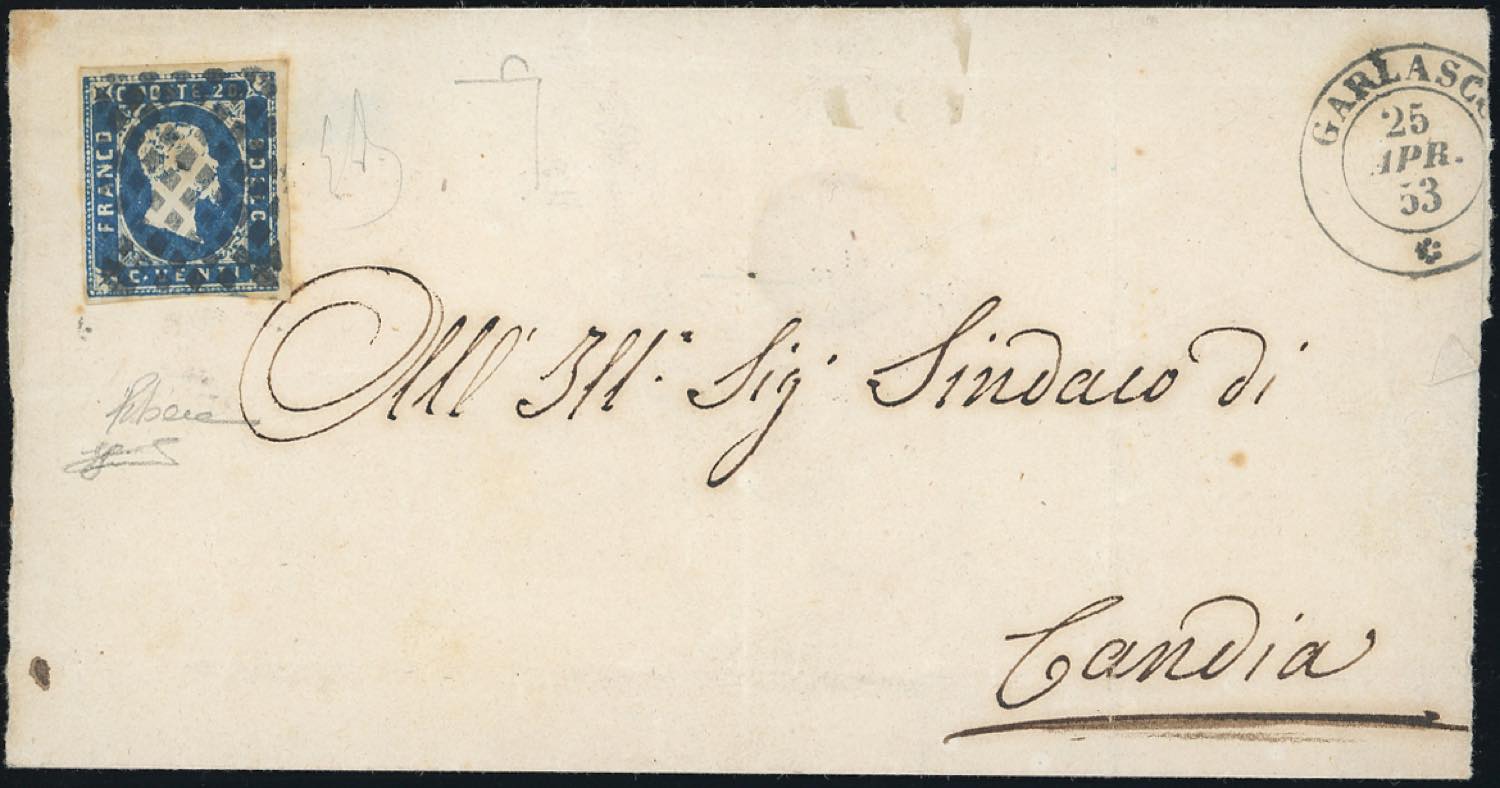 C. POSTE 20.
FRANCO
BOLLO
C. VENTI
GARLASCO
25
APR.
53
All' Ill.º Sigʳ Sindaco di
Candia